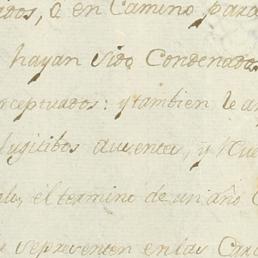 dos, o en Camino para
hayan sido Condenados
ceptuados: y tambien le a
fugitibos ausentes, y
el termino de un año
se presenten en las Carc